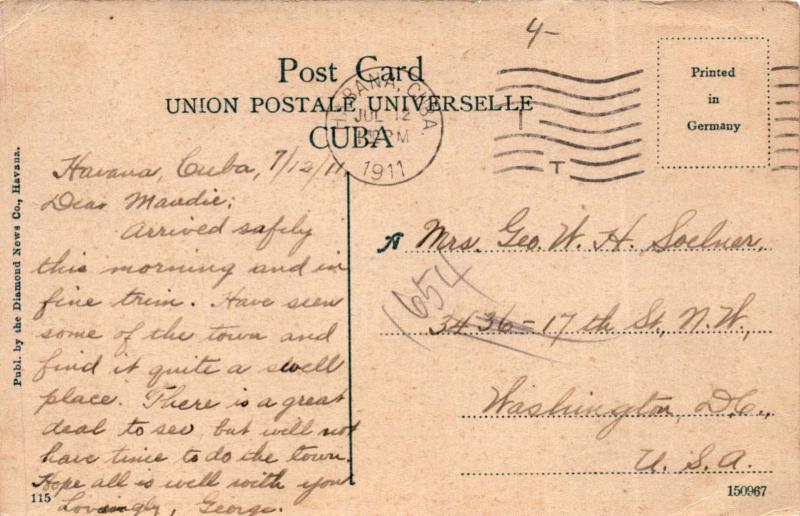 4-
Post Card
UNION POSTALE UNIVERSELLE
CUBA
HABANA, CUBA.
JUL 12
PM
1911
T
T
Printed
in
Germany
Publ. by the Diamond News Co., Havana.
Havana, Cuba, 7/12/11
Dear Maudie;
Arrived safely
this morning and in
fine trim. Have seen
some of the town and
find it quite a swell
place. There is a great
deal to see, but will not
have time to do the town.
Hope all is well with you
Lovingly, George.
115
Mrs. Geo. W. H. Soelner,
1654
3436-17th St., N.W.,
Washington, D.C.,
U.S.A.
150967